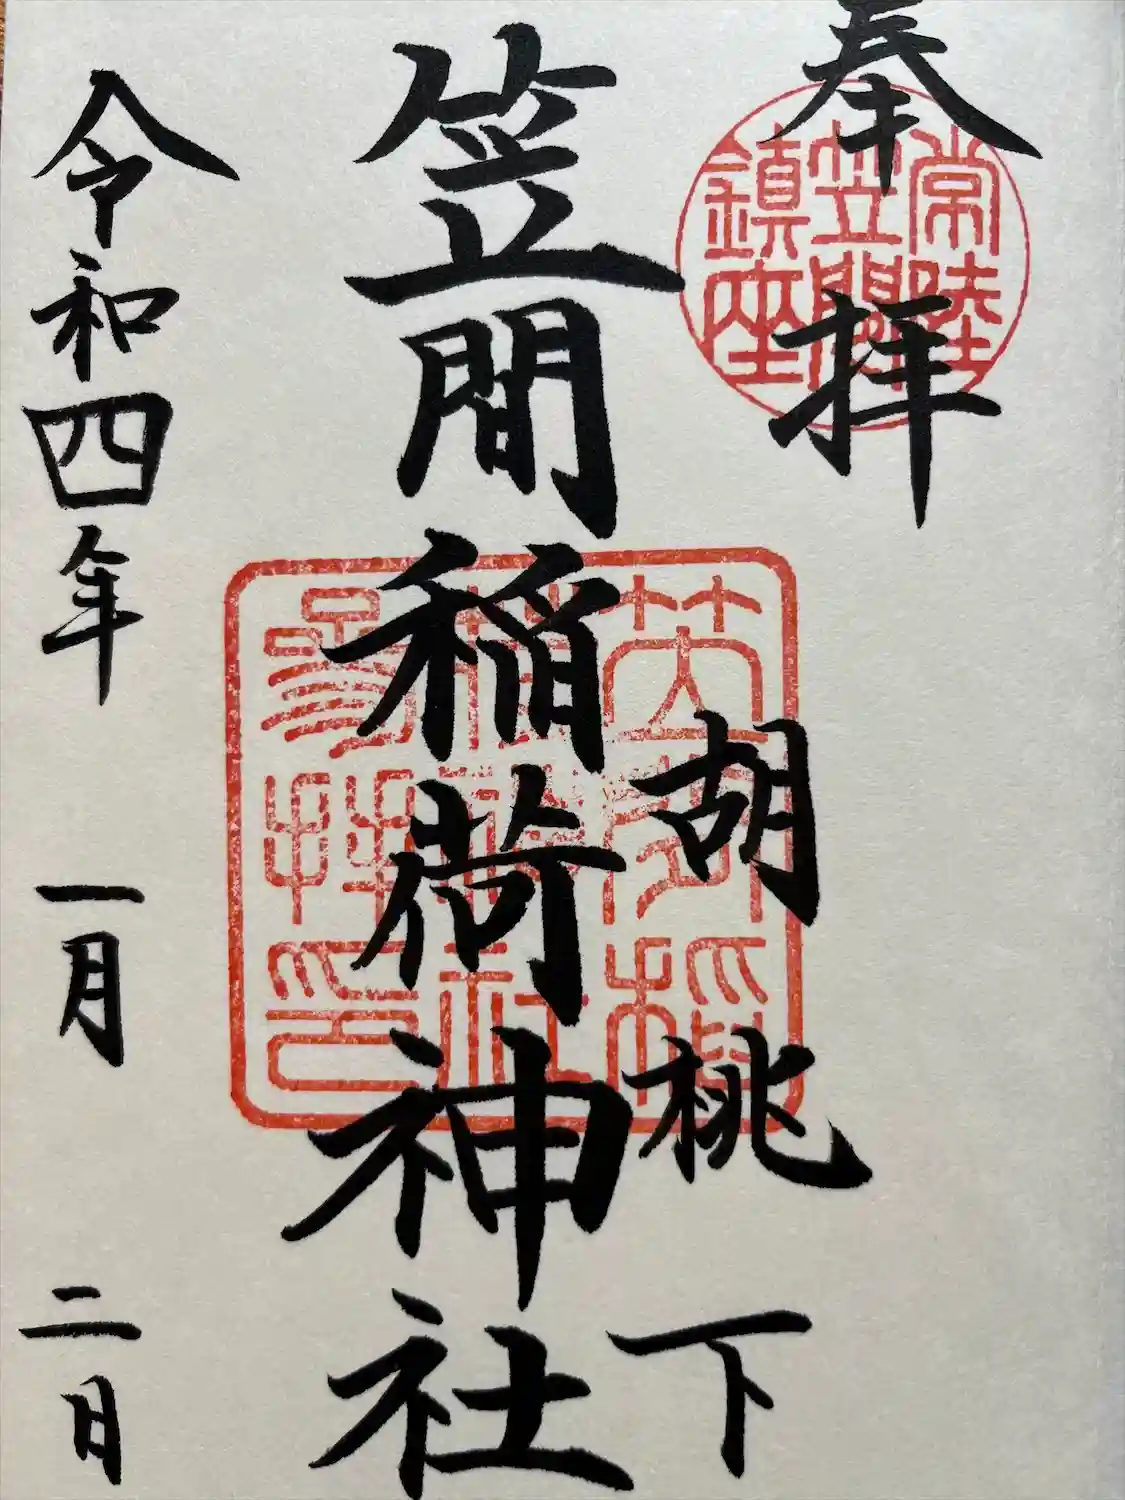 奉拝
常陸
笠間
鎮座
胡桃下
笠間稲荷神社
令和四年 一月 二日